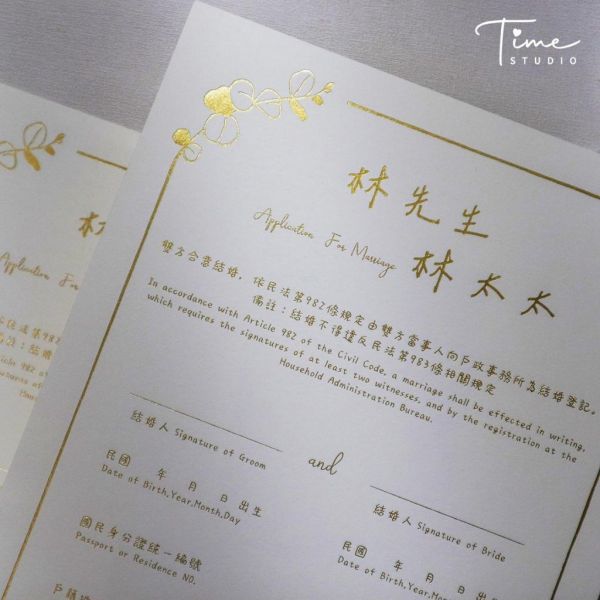 Time
STUDIO
林先生
Application For Marriage
林太太
雙方合意結婚，依民法第982條規定由雙方當事人向戶政事務所為結婚登記。
備註：結婚不得違反民法第983條相關規定
In accordance with Article 982 of the Civil Code, a marriage shall be effected in writing,
which requires the signatures of at least two witnesses, and by the registration at the
Household Administration Bureau.
結婚人 Signature of Groom
and
結婚人 Signature of Bride
民國 年 月 日 出生
Date of Birth,Year,Month,Day
民國 年 月 日 出生
Date of Birth,Year,Month,Day
國民身分證統一編號
Passport or Residence NO.
戶籍
林
Application For
依民法第98
備註：結婚